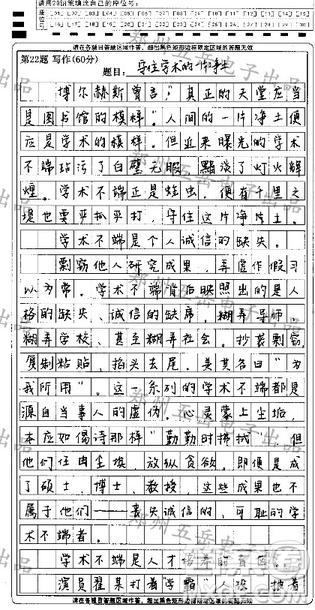 请在各题目的答题区域内作答，超出黑色矩形边框限定区域的答案无效
第22题 写作(60分)
题目： 守住学术的一片净土
博尔赫斯曾言：“真正的天堂应当
是图书馆的模样。”人间的一片净土便
应是学术的模样。但近来曝光的学术
不端玷污了白壁无瑕，黯淡了灯火辉
煌。学术不端正是蛀虫，便有
境也要平，守住这片净土。
学术不端是个人诚信的缺失。
剽窃他人研究成果，弄虚作假习
以为常。学术不端背后映照出的是人
格的缺失、诚信的缺席，糊弄导师、
糊弄学校、甚至糊弄社会。抄袭剽窃
复制粘贴、掐头去尾，美其名曰“为
我所用”。这一系列的学术不端都是
源自当事人的虚伪。心灵蒙上尘垢，
本应如偈诗那样“勤勤时拂拭”，但
他们任由尘埃，放纵贪欲，即便是成
了硕士、博士、教授，这些成果也不
属于他们——丧失诚信的、可耻的学
术不端者。
学术不端是人才
演员翟某打着学霸人设，披着
请在各题目的答题区域内作答，超出黑色矩形边框限定区域的答案无效